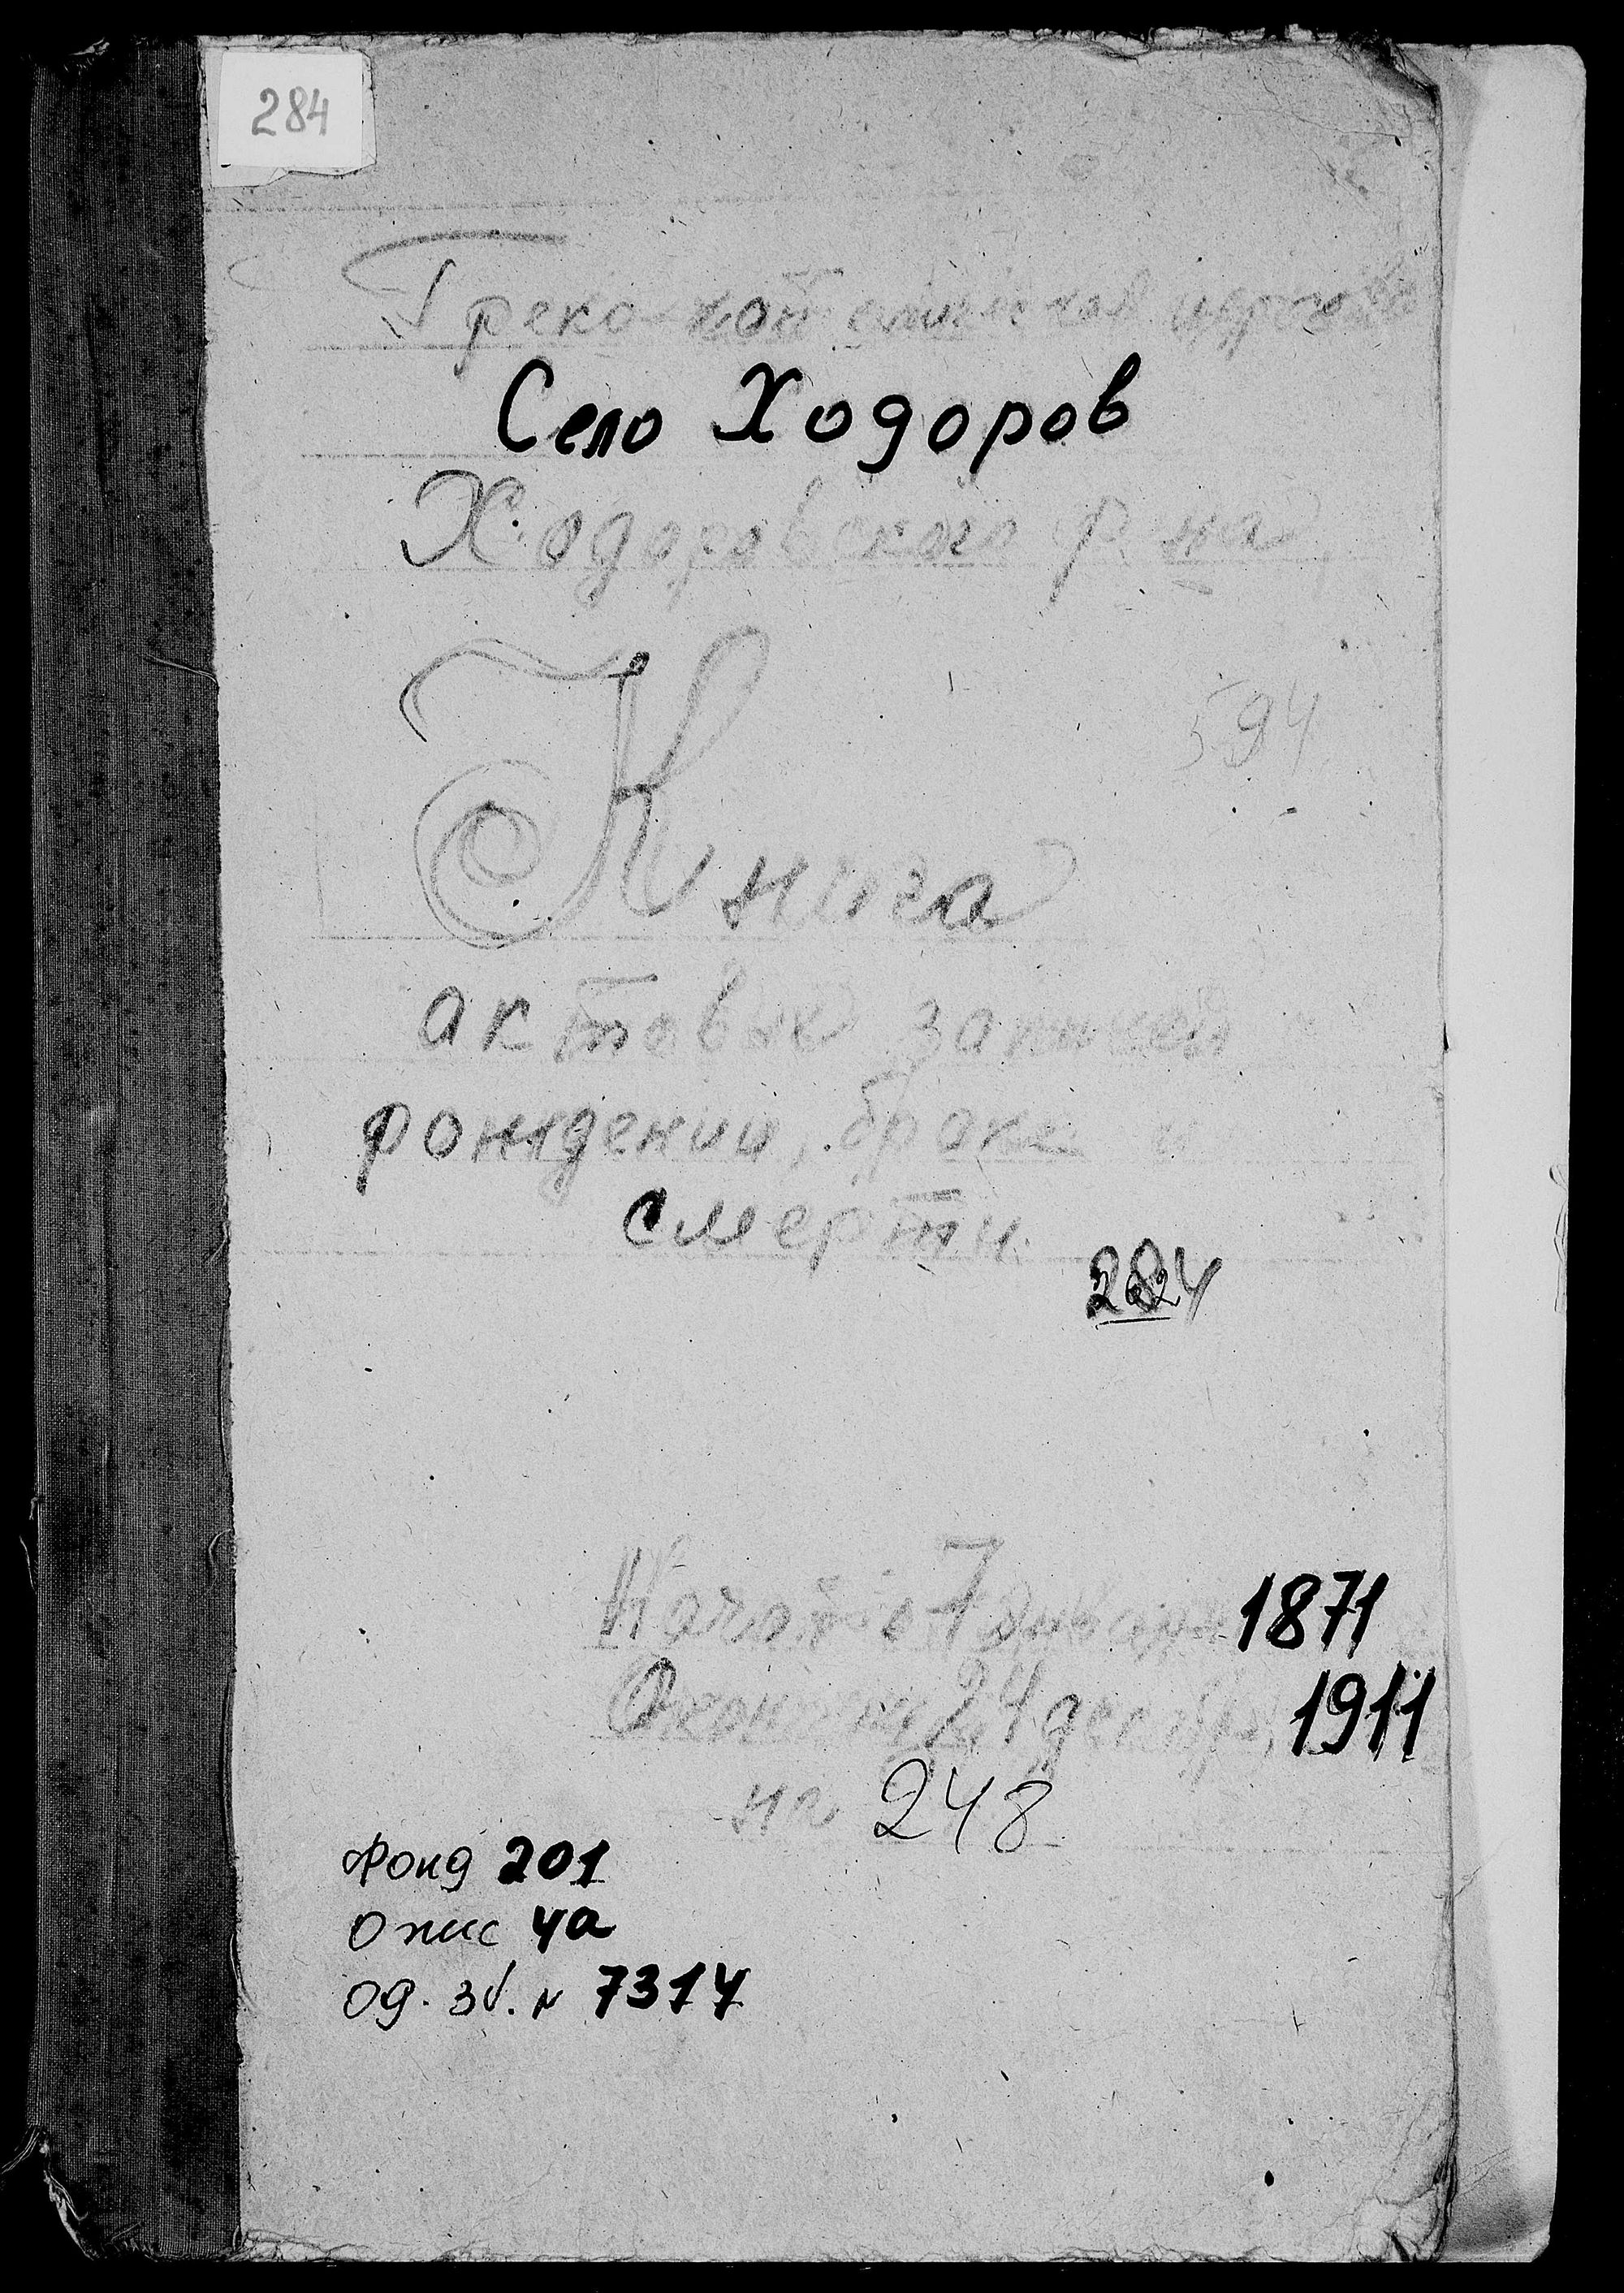 284
Греко-католическая церковь
Село Ходоров
Ходоровского р-на
594
Книга
актовых записей
рождении, брака и
смерти
Начато 7 января 1871
Окончена 24 декабря 1911
на 248
Фонд 201
Опис 4а
од. зб. № 7314